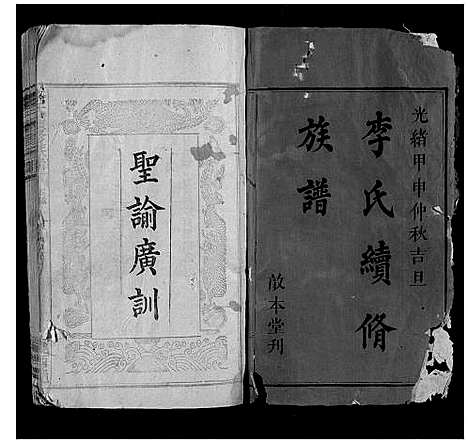 光緒甲申仲秋吉旦
李氏續脩
族譜
敔本堂刋
聖諭廣訓